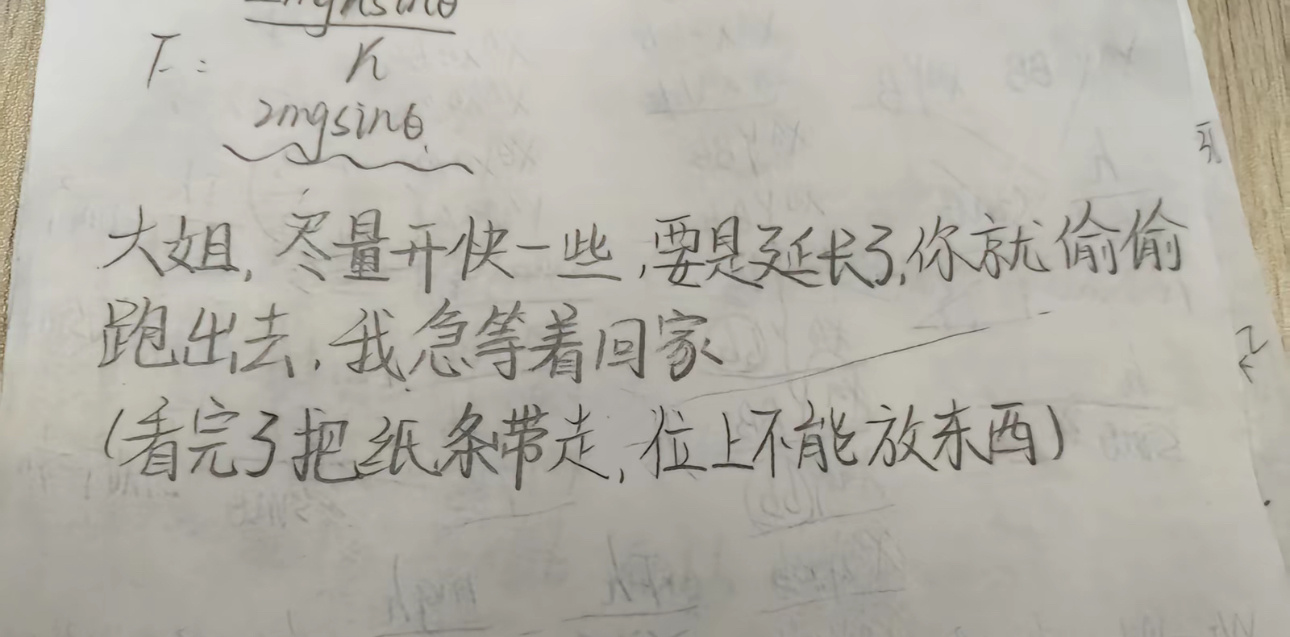 T=
K
2mgsinθ
大姐,尽量开快一些,要是延长了,你就偷偷
跑出去,我急等着回家
(看完了把纸条带走,位上不能放东西)